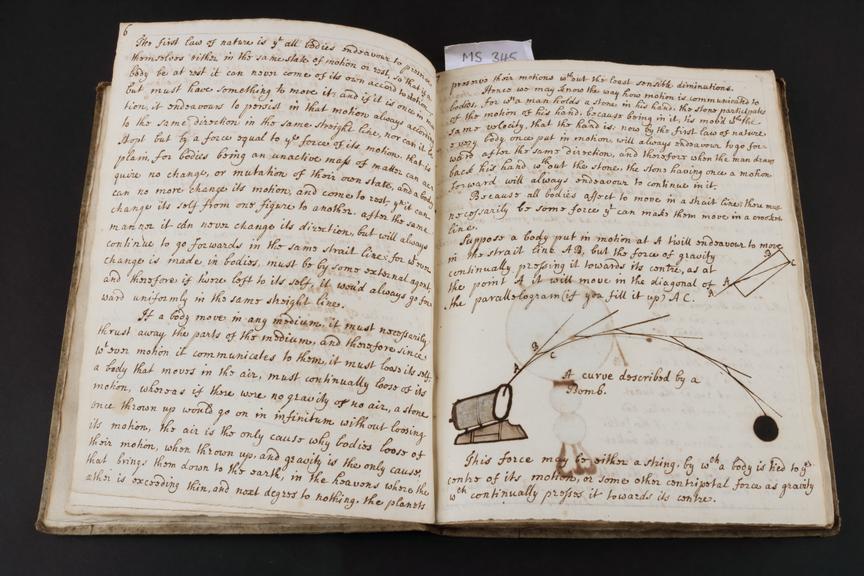 6
The first law of nature is yt all bodies endeavour to
themselves either in the same state of motion or rest, so that if a
body be at rest it can never come of its own accord to motion
but must have something to move it; and if it is once in mo
tion, it endeavours to persist in that motion always according
to the same direction in the same streight line, nor can it be
stopt but by a force equal to ye force of its motion. that is
plain, for bodies being an unactive mass of matter can ac
quire no change, or mutation of their own state, and a body
can no more change its motion, and come to rest, yn it can
change its self from one figure to another. after the same
manner it can never change its direction, but will always
continue to go forwards in the same strait line: for wt ever
change is made in bodies, must be by some external agent,
and therefore if twere left to its self, it would always go for
ward uniformly in the same streight line.
If a body move in any medium, it must necessarily
thrust away the parts of the medium, and therefore since
wt ever motion it communicates to them, it must lose its self,
a body that moves in the air, must continually lose of its
motion, whereas if there were no gravity of no air, a stone
once thrown up would go on in infinitum without loosing
its motion, the air is the only cause why bodies loose of
their motion, when thrown up, and gravity is the only cause,
that brings them down to the earth; in the heavens where the
æther is exceeding thin, and next degree to nothing, the planets
MS 345
preserve their motions wthout the least sensible diminutions.
Hence we may know the way how motion is communicated to
bodies, for wn a man holds a stone in his hand, the stone participates
of the motion of his hand, because being in it, tis mov'd wth the
same velocity, that the hand is: now by the first law of nature
every body once put in motion, will always endeavour to go for
ward after the same direction, and therefore when the man draws
back his hand wthout the stone, the stone having once a motion
forward will always endeavour to continue in it.
Because all bodies affect to move in a strait line, there must
necessarily be some force yt can make them move in a crooked
line.
Suppose a body put in motion at A twill endeavour to move
in the strait line AB, but the force of gravity
continually pressing it towards its centre, as at
the point A it will move in the diagonal of
the parallelogram (if you fill it up) AC.
B
C
A
A
B
C
A curve described by a
Bomb.
This force may be either a string, by wch a body is tied to ye
centre of its motion, or some other centripetal force as gravity
wch continually presses it towards its centre.